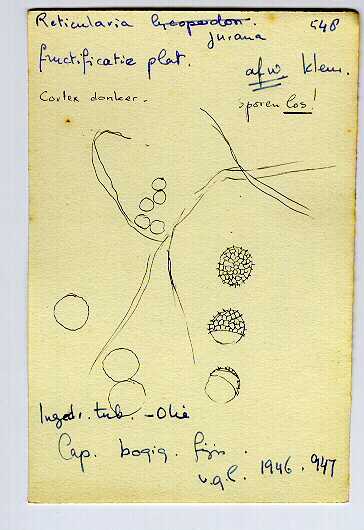 Reticularia lycoperdon. 548
jurana
fructificatie plat. afw. kleur.
Cortex donker. sporen los!
Ingedr. tub. - Olie
Cap. bogig. fijn.
v.g.l. 1946. 947